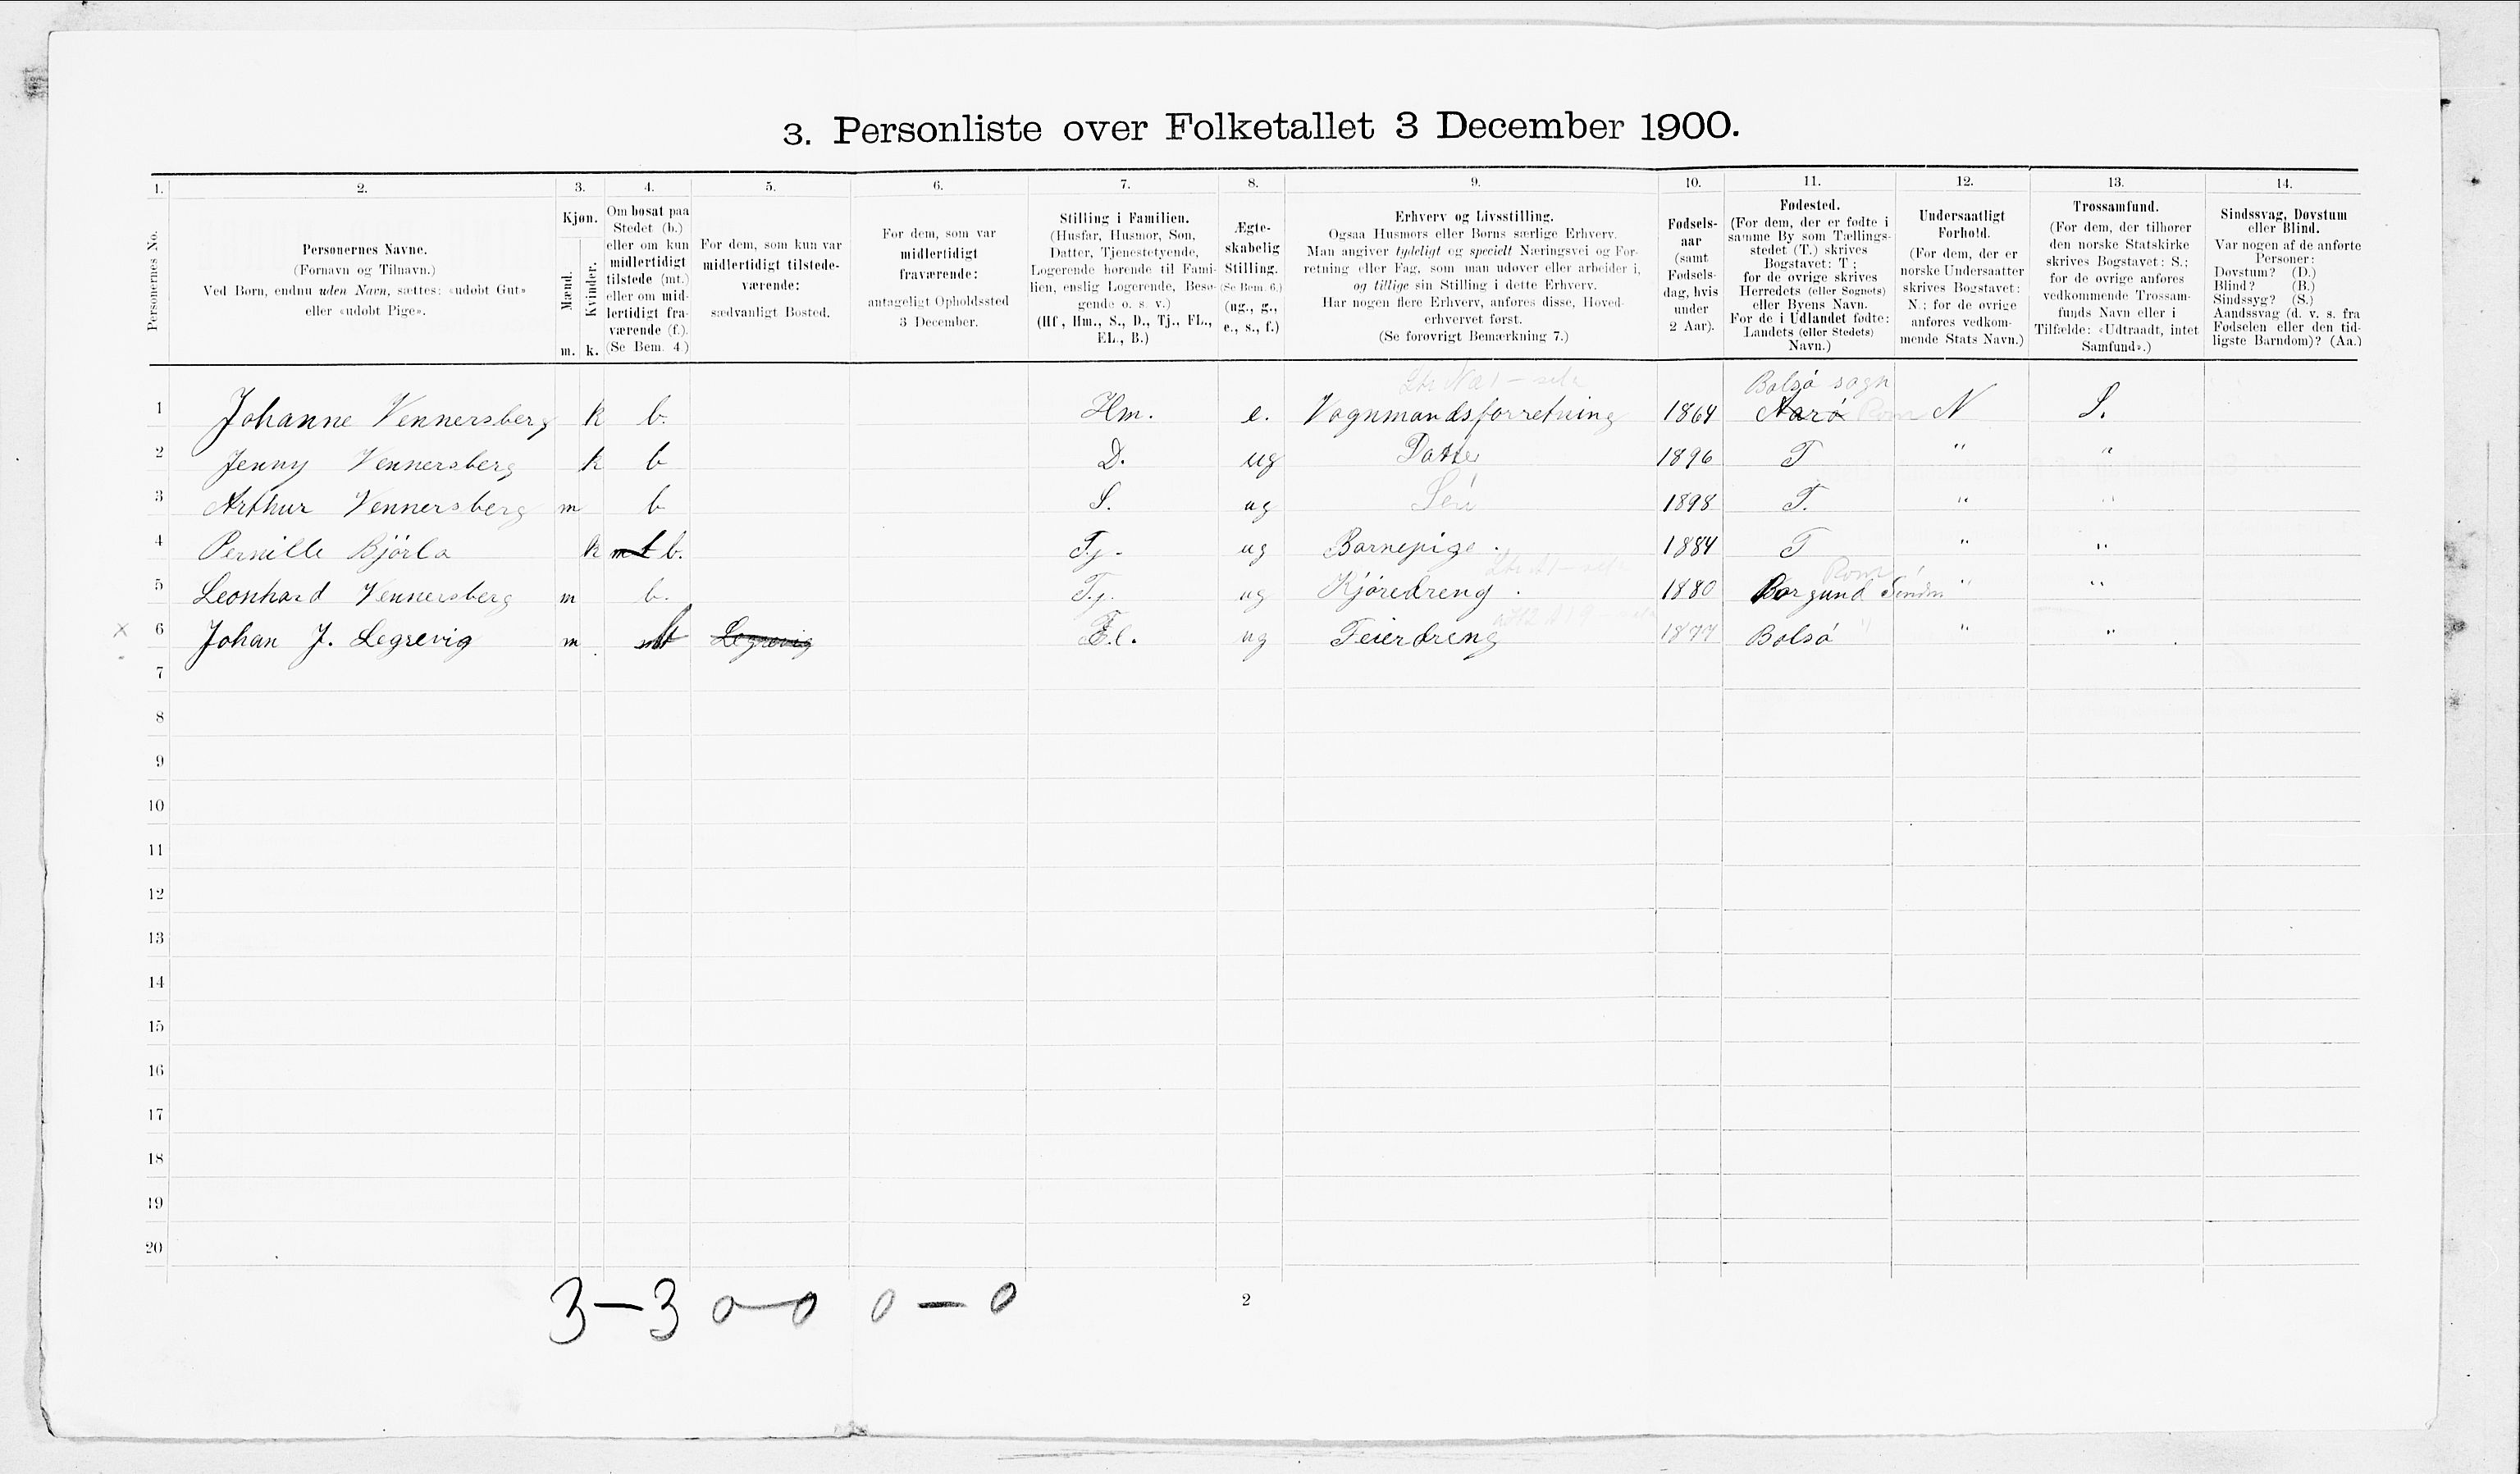 3. Personliste over Folketallet 3 December 1900.
1. 2. 3. 4. 5. 6. 7. 8. 9. 10. 11. 12. 13. 14.
Personernes No.
Personernes Navne.
(Fornavn og Tilnavn.)
Ved Børn, endnu uden Navn, sættes: «udøbt Gut»
eller «udøbt Pige».
Kjøn.
Mænd.
Kvinder.
m. k.
Om bosat paa
Stedet (b.)
eller om kun
midlertidigt
tilstede (mt.)
eller om mid-
lertidigt fra-
værende (f.).
(Se Bem. 4.)
For dem, som kun var
midlertidigt tilstede-
værende:
sædvanligt Bosted.
For dem, som var
midlertidigt
fraværende:
antageligt Opholdssted
3 December.
Stilling i Familien.
(Husfar, Husmor, Søn,
Datter, Tjenestetyende,
Logerende hørende til Fami-
lien, enslig Logerende, Besø-
gende o. s v.)
(Hf, Hm., S., D., Tj., FL.,
EL., B.)
Ægte-
skabelig
Stilling.
(Se Bem. 6.)
(ug., g.,
e., s., f.)
Erhverv og Livsstilling.
Ogsaa Husmors eller Børns særlige Erhverv.
Man angiver tydeligt og specielt Næringsvei og For-
retning eller Fag, som man udøver eller arbeider i,
og tillige sin Stilling i dette Erhverv.
Har nogen flere Erhverv, anføres disse, Hoved-
erhvervet først.
(Se forøvrigt Bemærkning 7.)
Fødsels-
aar
(samt
Fødsels-
dag, hvis
under
2 Aar).
Fødested.
(For dem, der er fødte i
samme By som Tællings-
stedet (T.) skrives
Bogstavet: T ;
for de øvrige skrives
Herredets (eller Sognets)
eller Byens Navn.
For de i Udlandet fødte:
Landets (eller Stedets)
Navn.)
Undersaatligt
Forhold.
(For dem, der er
norske Undersaatter
skrives Bogstavet:
N.; for de øvrige
anføres vedkom-
mende Stats Navn.)
Trossamfund.
(For dem, der tilhører
den norske Statskirke
skrives Bogstavet: S.;
for de øvrige anføres
vedkommende Trossam-
funds Navn eller i
Tilfælde: «Udtraadt, intet
Samfund».)
Sindssvag, Døvstum
eller Blind.
Var nogen af de anførte
Personer:
Døvstum? (D.)
Blind? (B.)
Sindssyg? (S.)
Aandssvag (d. v. s. fra
Fødselen eller den tid-
ligste Barndom)? (Aa.)
Bolsø sogn
1 Johanne Vennersberg k b. Hm. e. Vognmandsforretning 1864 Aarø Rom N S.
2 Jenny Vennersberg k b D. ug Datter 1896 T " "
3 Arthur Vennersberg m b S. ug Sön 1898 T. " "
4 Pernille Björla k mt b. Tj. ug Barnepige. 1884 T " "
Rom
5 Leonhard Vennersberg m b. Tj. ug Kjöredreng. 1880 Borgund Söndm " "
6 Johan J. Legrevig m mt Legrevig E.l. ug Feierdreng 1877 Bolsö " "
7
8
9
10
11
12
13
14
15
16
17
18
19
20
3–3 0–0 0–0
2